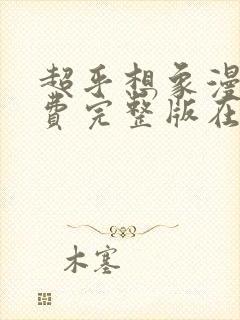 超乎想象漫
费完整版在
木塞